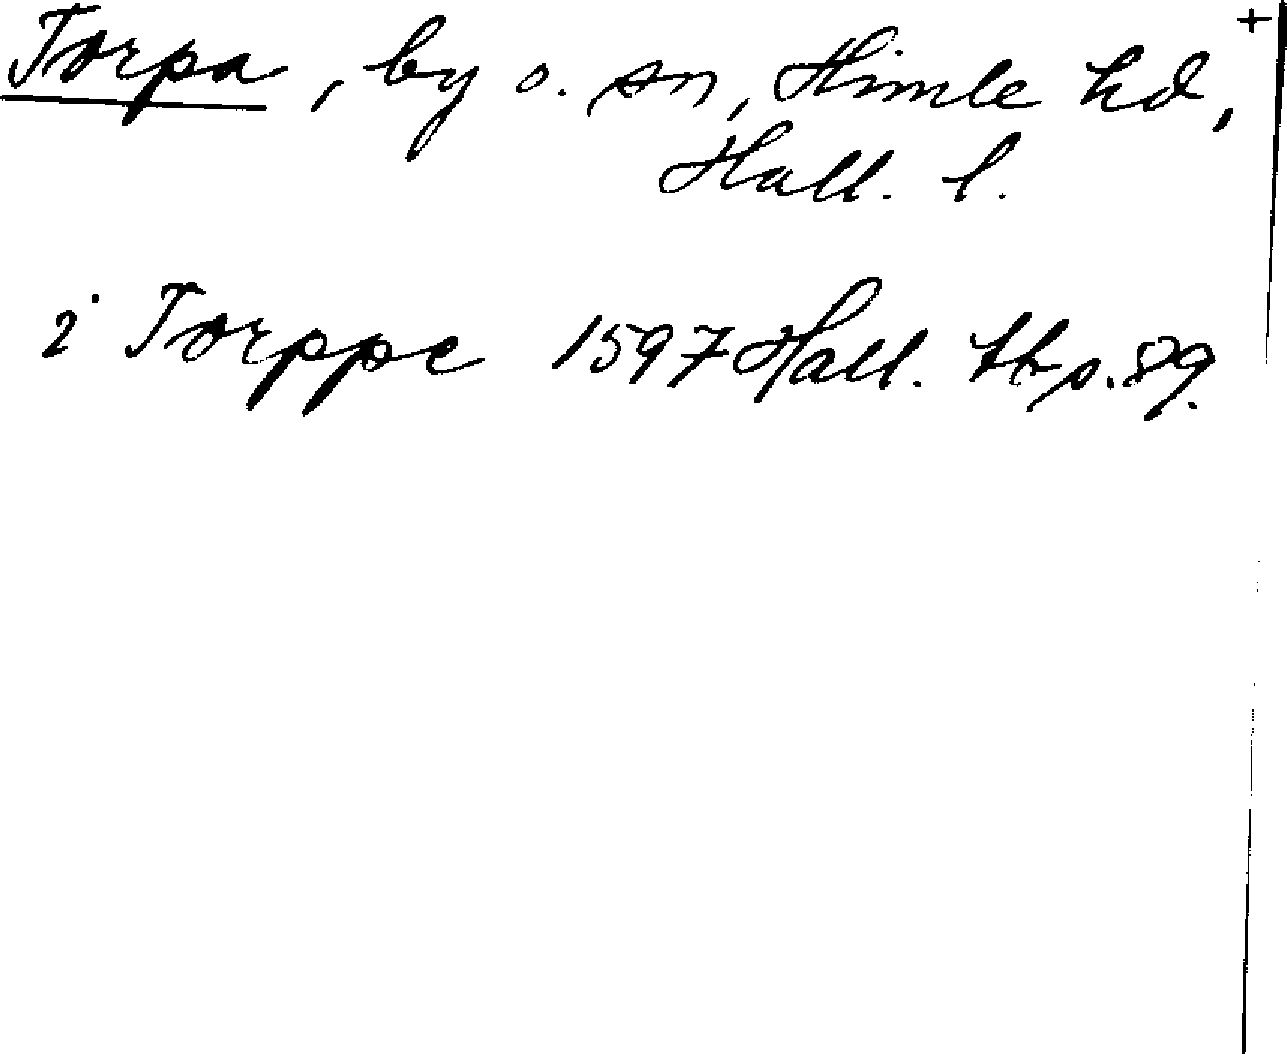 Torpa, by o. sn, Himle hd, +
Hall. l.
i Torppe 1597 Hall. tb s. 89.